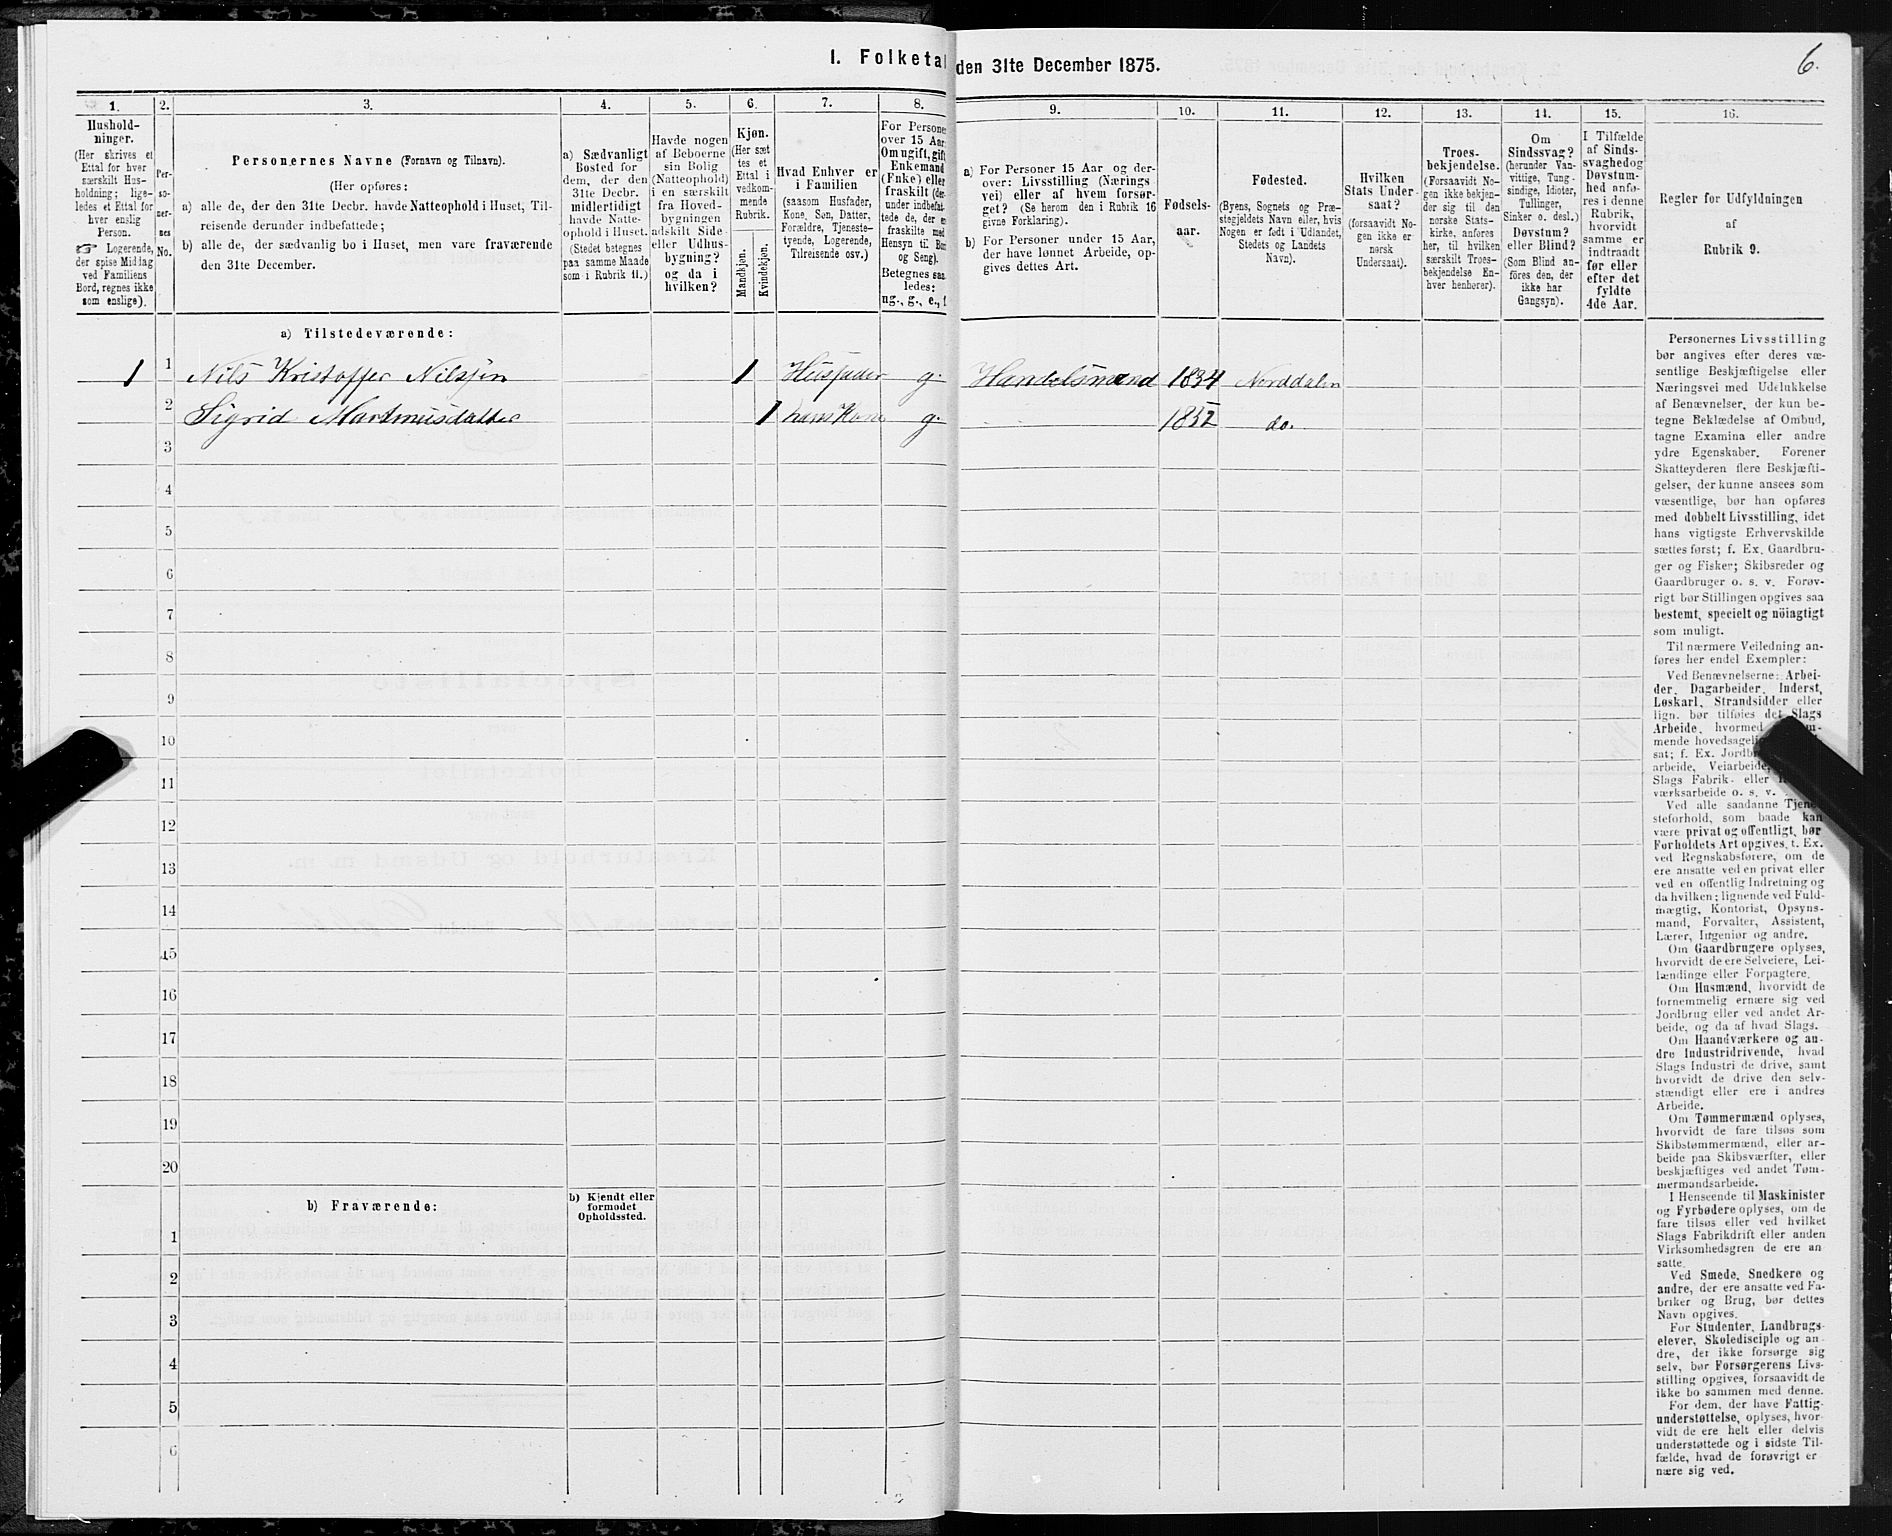 I. Folketal den 31te December 1875.
6.
1. 2. 3. 4. 5. 6. 7. 8. 9. 10. 11. 12. 13. 14. 15. 16.
Hushold-
ninger.
(Her skrives et
Ettal for hver
særskilt Hus-
holdning; lige-
ledes et Ettal for
hver enslig
Person.
☞ Logerende,
der spise Middag
ved Familiens
Bord, regnes ikke
som enslige).
Per-
so-
ner-
nes
No.
Personernes Navne (Fornavn og Tilnavn).
(Her opføres:
a) alle de, der den 31te Decbr. havde Natteophold i Huset, Til-
reisende derunder indbefattede;
b) alle de, der sædvanlig bo i Huset, men vare fraværende
den 31te December.
a) Sædvanligt
Bosted for
dem, der den
31te Decbr.
midlertidigt
havde Natte-
ophold i Huset.
(Stedet betegnes
paa samme Maade
som i Rubrik 11.)
Havde nogen
af Beboerne
sin Bolig
(Natteophold)
i en særskilt
fra Hoved-
bygningen
adskilt Side-
eller Udhus-
bygning?
og da i
hvilken?
Kjøn.
(Her sæt-
tes et
Ettal i
vedkom-
mende
Rubrik.
Mandkjøn.
Kvindekjøn.
Hvad Enhver er
i Familien
(saasom Husfader,
Kone, Søn, Datter,
Forældre, Tjeneste-
tyende, Logerende,
Tilreisende osv.)
For Persone
over 15 Aar
Om ugift, gift
Enkemand
(Enke) eller
fraskilt (der-
under indbefat-
tede de, der er
fraskilte med
Hensyn til Bor
og Seng).
Betegnes saa
ledes:
ug., g., e., f
a) For Personer 15 Aar og der-
over: Livsstilling (Nærings
vei) eller af hvem forsør-
get? (Se herom den i Rubrik 16
givne Forklaring).
b) For Personer under 15 Aar,
der have lønnet Arbeide, op-
gives dettes Art.
Fødsels-
aar.
Fødested.
(Byens, Sognets og Præ-
stegjeldets Navn eller, hvis
Nogen er født i Udlandet,
Stedets og Landets
Navn).
Hvilken
Stats Under-
saat?
(forsaavidt No-
gen ikke er
norsk
Undersaat).
Troes-
bekjendelse.
(Forsaavidt No-
gen ikke bekjen-
der sig til den
norske Stats-
kirke, anføres
her, til hvilken
særskilt Troes-
bekjendelse En-
hver henhører).
Om
Sindssvag?
(herunder Van-
vittige, Tung-
sindige, Idioter,
Tullinger,
Sinker o. desl.)
Døvstum?
eller Blind?
(Som Blind an-
føres den, der
ikke har
Gangsyn).
I Tilfælde
af Sinds-
svaghed og
Døvstum-
hed anfø-
res i denne
Rubrik,
hvorvidt
samme er
indtraadt
før eller
efter det
fyldte
4de Aar.
Regler for Udfyldningen
af
Rubrik 9.
a) Tilstedeværende:
1 1 Nils Kristoffer Nilsjen 1 Husfader g. Handelsmand 1834 Norddalen
2 Sigrid Martinusdatter 1 hans Kone g. 1832 do.
3
4
5
6
7
8
9
10
11
12
13
14
15
16
17
18
19
20
b) Fraværende:
b) Kjendt eller
formodet
Opholdssted.
1
2
3
4
5
6
Personernes Livsstilling
bør angives efter deres væ-
sentlige Beskjæftigelse eller
Næringsvei med Udelukkelse
af Benævnelser, der kun be-
tegne Beklædelse af Ombud,
tagne Examina eller andre
ydre Egenskaber. Forener
Skatteyderen flere Beskjæfti-
gelser, der kunne ansees som
væsentlige, bør han opføres
med dobbelt Livsstilling, idet
hans vigtigste Erhvervskilde
sættes først; f. Ex. Gaardbru-
ger og Fisker; Skibsreder og
Gaardbruger o. s. v. Forøv-
rigt bør Stillingen opgives saa
bestemt, specielt og nöiagtigt
som muligt.
Til nærmere Veiledning an-
føres her endel Exempler:
Ved Benævnelserne: Arbei-
der, Dagarbeider, Inderst,
Løskarl, Strandsidder eller
lign. bør tilføies det Slags
Arbeide, hvormed
mende hovedsagelig
sat; f. Ex. Jordbr
arbeide, Veiarbeide,
Slags Fabrik- eller
værksarbeide o. s. v.
Ved alle saadanne Tjene-
steforhold, som baade kan
være privat og offentligt, bør
Forholdets Art opgives, f. Ex.
ved Regnskabsførere, om de
ere ansatte ved en privat eller
ved en offentlig Indretning og
da hvilken; lignende ved Fuld-
mægtig, Kontorist, Opsyns-
mand, Forvalter, Assistent,
Lærer, Ingeniør og andre.
Om Gaardbrugere oplyses,
hvorvidt de ere Selveiere, Lei-
lændinge eller Forpagtere.
Om Husmænd, hvorvidt de
fornemmelig ernære sig ved
Jordbrug eller ved andet Ar-
beide, og da af hvad Slags.
Om Haandværkere og an-
dre Industridrivende, hvad
Slags Industri de drive, samt
hvorvidt de drive den selv-
stændigt eller ere i andres
Arbeide.
Om Tømmermænd oplyses,
hvorvidt de fare tilsøs som
Skibstømmermænd, eller ar-
beide paa Skibsværfter, eller
beskjæftiges ved andet Tøm-
mermandsarbeide.
I Henseende til Maskinister
og Fyrbødere oplyses, om de
fare tilsøs eller ved hvilket
Slags Fabrikdrift eller anden
Virksomhedsgren de ere an-
satte.
Ved Smede, Snedkere og
andre, der ere ansatte ved Fa-
briker og Brug, bør dettes
Navn opgives.
For Studenter, Landbrugs-
elever, Skoledisciple og an-
dre, der ikke forsørge sig
selv, bør Forsørgerens Livs-
stilling opgives, forsaavidt de
ikke bo sammen med denne.
For dem, der have Fattig-
understøttelse, oplyses, hvor-
vidt de ere helt eller delvis
understøttede og i sidste Til-
fælde, hvad de forøvrigt er-
nære sig ved.